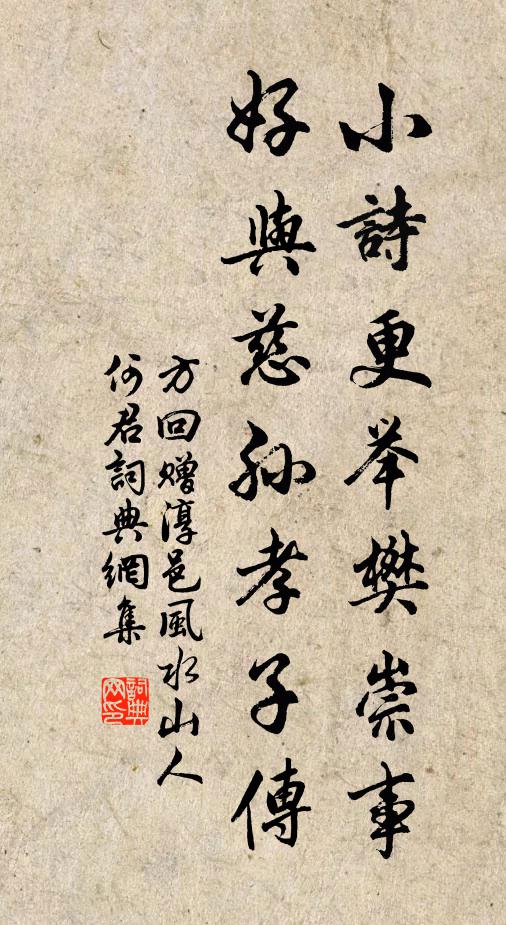 小詩更举樊崇事
好與慈孙孝子傳
方回赠淳邑風水山人
何君詞典網集
詞典网印